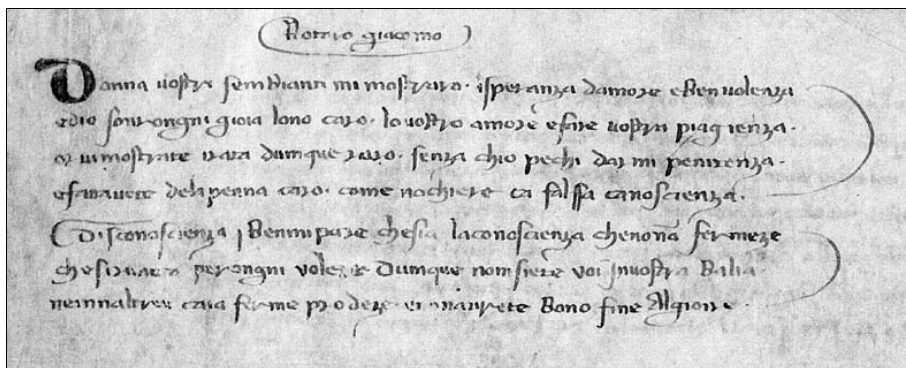 Notaro giacomo
Donna uostri sembianti mi mostraro · isperanza damore ebenuolenza
edio sourongni gioia lono caro · lo uostro amore efare uostra piagienza ·
or uimostrate irata dumque raro · senza chio pechi dar mi penitenza ·
efatauete delapenna caro · come nochiere ca falssa canoscienza ·
Disconoscienza benmi pare chesia laconoscienza chenona fermeze
chesirimuta perongni uolere dumque nonsiete uoi Inuostra balia
neinnaltrui caia ferme prodeze · enonaurete bono fine Algioire ·